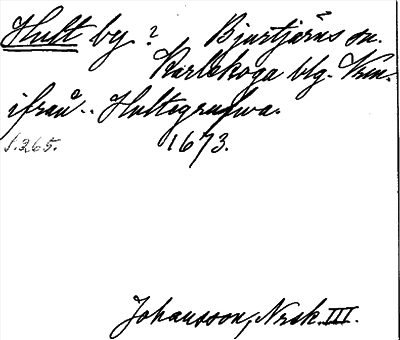 Hult by ? Bjurtjärns sn.
Karlskoga blg. Vrm.
ifrån.. Hultegrufwa.
s.265. 1673.
Johansson, Nrsk. III.